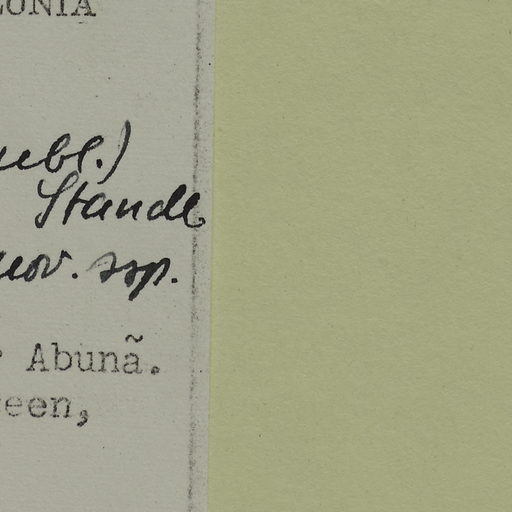 LONIA
uebl.)
Standl.
nov. ssp.
Abunã.
een,